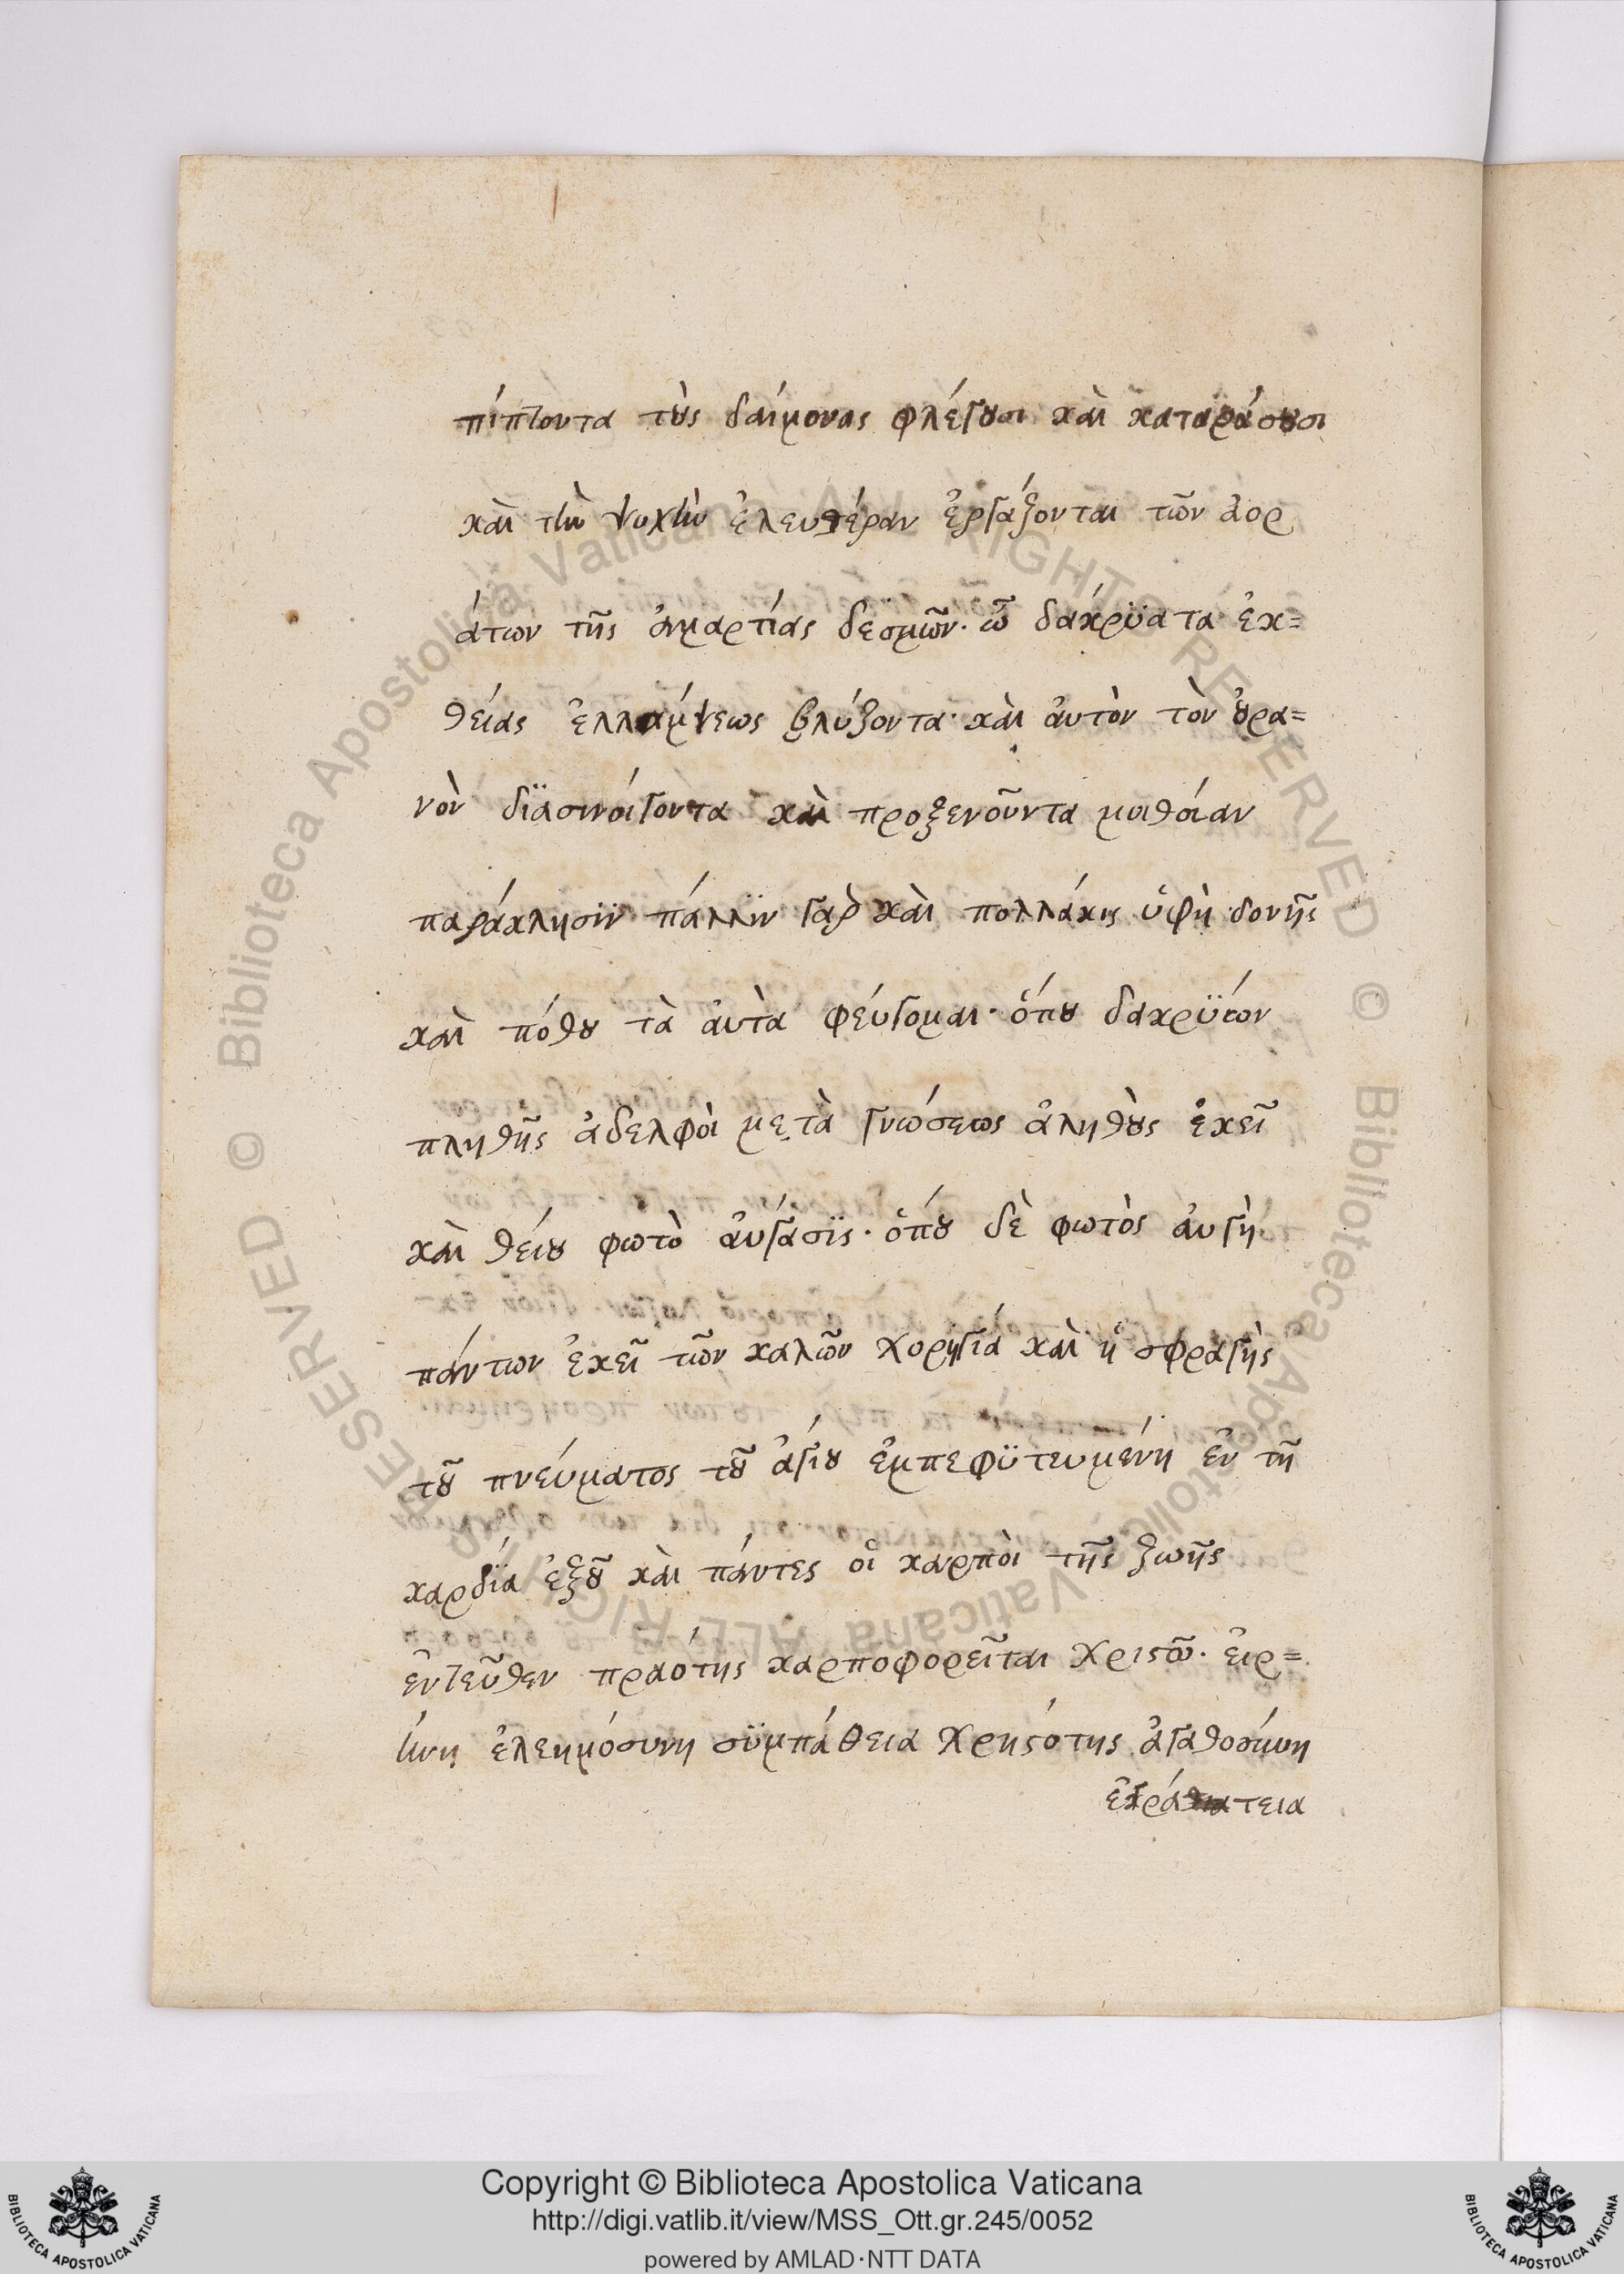 πίπτοντα τοὺς δαίμονας φλέγουσι καὶ καταράσουσι
καὶ τὴν ψυχὴν ἐλευθέραν ἐργάζονται τῶν ἀορ
άτων τῆς ἁμαρτίας δεσμῶν· ὦ δάκρϋατα ἐκ=
θείας ἐλλάμψεως βλύζοντα· καὶ ἀυτὸν τὸν ὀυρα=
νὸν δϊασινοίγοντα καὶ προξενοῦντα μοιθείαν
παράκλησϊν πάλλϊν γαρ καὶ πολλάκις ὑφὴ δονῆς
καὶ πόθου τὰ ἀυτὰ φέυγομαι· ὅπου δακρϋτον
πληθῆς ἀδελφοὶ μετὰ γνώσεως ἀληθοὺς ἐκεῖ
καὶ θείου φωτὸ ἀυγασϊς· ὅπου δὲ φωτὸς ἀυγὴ
πάντων ἐκεῖ τῶν καλῶν χορηγία καὶ ἡ σφραγὴς
τοῦ πνεύματος τοῦ ἁγίου ἐμπεφϋτευμένη ἐν τῆ
καρδία ἐξοῦ καὶ πάντες οἱ καρποὶ τῆς ζωῆς
ἐντεῦθεν πραότης καρποφορεῖται Χριστῶ· ἐιρ=
ήνη ἐλεημόσυνη σϋμπάθεια χρηστότης ἀγαθοσύνη
τεια
Copyright © Biblioteca Apostolica Vaticana
http://digi.vatlib.it/view/MSS_Ott.gr.245/0052
powered by AMLAD·NTT DATA
BIBLIOTECA APOSTOLICA VATICANA
BIBLIOTECA APOSTOLICA VATICANA
© Biblioteca Apostolica Vaticana ALL RIGHTS RESERVED © Biblioteca Apostolica Vaticana ALL RIGHTS RESERVED